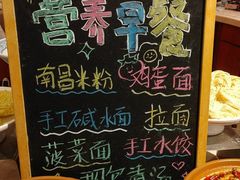 营养早餐
南昌米粉 鸡杂面
手工碱水面 拉面
菠菜面 手工水饺